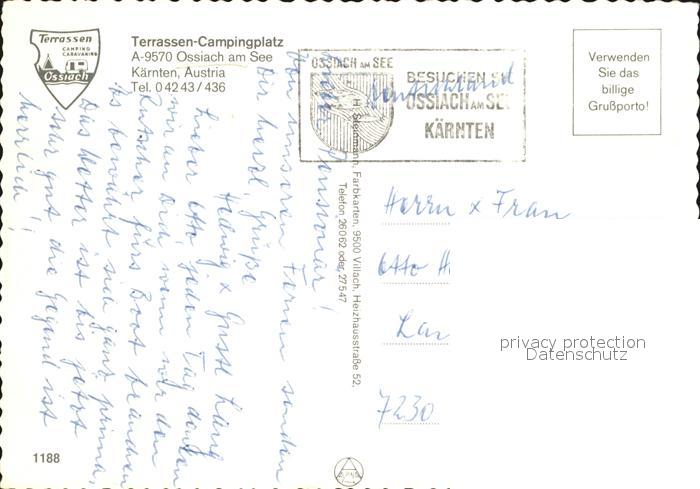 Terrassen
CAMPING
CARAVANING
Ossiach
Terrassen-Campingplatz
A-9570 Ossiach am See
Kärnten, Austria
Tel. 0 42 43 / 436
OSSIACH AM SEE
BESUCHEN SIE
OSSIACH AM SEE
KÄRNTEN
Deutschland
Verwenden
Sie das
billige
Grußporto!
Von unseren Ferien senden
Dir herzl. Grüße
Hedwig x Gustl Lang
Lieber Otto jeden Tag denken
wir an Dich, wenn wir den
Rutscher fürs Boot brauchen
Es bewährt sich ganz prima,
Das Wetter ist bis jetzt
sehr gut die Gegend ist
herrlich!
H. Steinmann, Farbkarten, 9500 Villach, Heizhausstraße 52,
Telefon 260 62 oder 275 47
Herrn x Frau
Otto H
7230
privacy protection
Datenschutz
1188